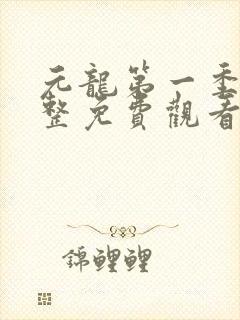 元龍第一季
整免費觀看
錦鯉鯉